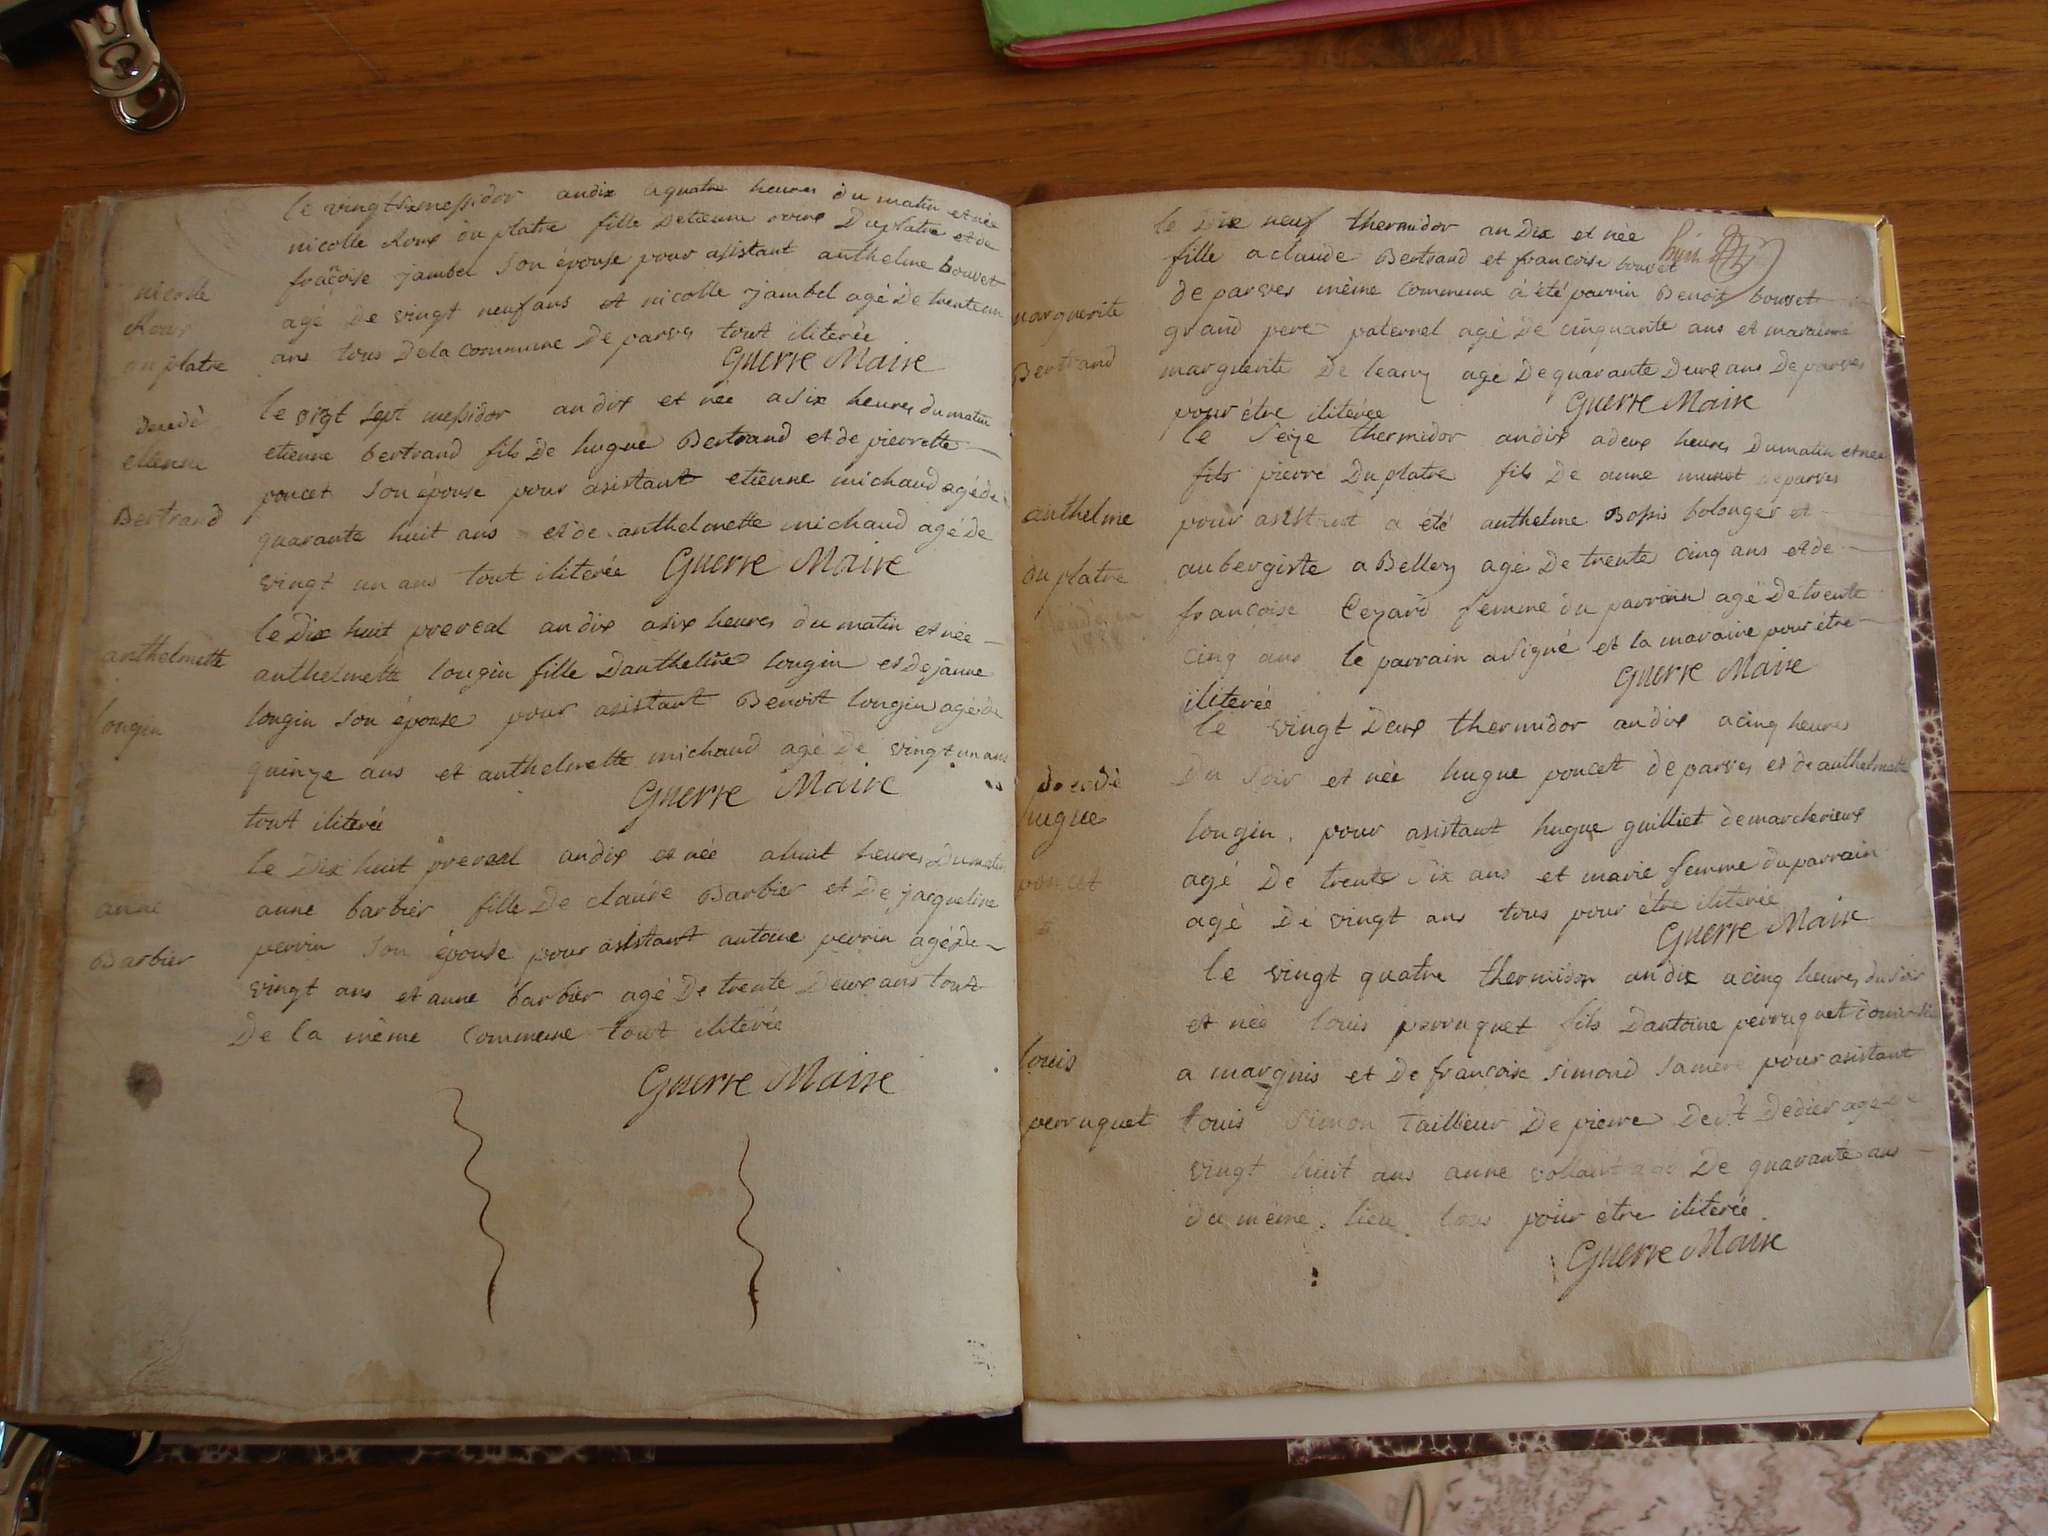 le vingt six messidor an dix a quatre heures du matin et née
nicolle Roux du platre fille De Roux Duplatre et de
fraçoise jambel son épouse pour asistant anthelme bouvet
agé De vingt neuf ans et nicolle jambel agé De trente un
ans tous De la commune De parves tout iliterée
Guerre Maire
nicolle
Roux
du platre
le vigt sept messidor an dix et née a six heures du matin
etienne bertrand fils De hugue Bertrand et de pierrette
poncet son épouse pour asistant etienne michaud agé de
quarante huit ans et de anthelmette michaud agé De
vingt un ans tout iliterée Guerre Maire
etienne
Bertrand
le Dix huit prereal an dix a six heures du matin et née
anthelmette longin fille D'anthelme longin et de janne
longin son épouse pour asistant Benoit longin agé de
quinze ans et anthelmette michaud agé De vingt un ans
Guerre Maire
tout iliterée
anthelmette
longin
le Dix huit prereal an dix et née a huit heures Du matin
anne barbier fille De claude Barbier et De jacqueline
perrin son épouse pour asistant antoine perrin agé de
vingt ans et anne barbier agé De trente Deux ans tout
De la même commune tout iliterée
Guerre Maire
anne
Barbier
le Dix neuf thermidor an Dix et née
fille a claude Bertrand et francoise bouvet
de parves même commune à été parrin Benoit bouvet
grand pere paternel agé De cinquante ans et maraine
marguerite De agé De quarante Deux ans De parves
pour étre iliterée Guerre Maire
marguerite
Bertrand
le seize thermidor an dix a deux heures Du matin et née
fils pierre Du platre fils De anne De parves
pour asistant a été anthelme Bossis bolonger et
aubergiste a Belley agé De trente cinq ans et de
françoise Cezard femme du parrain agé De trente
cinq ans le parrain a signé et la maraine pour étre
Guerre Maire
iliterée
anthelme
du platre
le vingt Deux thermidor an dix a cinq heures
Du soir et née hugue poncet de parves et de anthelmette
longin, pour asistant hugue guilliet de marcherieux
agé De trente six ans et marie femme du parrain
agé De vingt ans tous pour étre iliterée
Guerre Maire
hugue
poncet
le vingt quatre thermidor an dix a cinq heures du soir
et née louis perruquet fils D'antoine perruquet
a margnis et De francoise simond sa mere pour asistant
louis simon tailleur De pierre De agé De
vingt huit ans anne vollant agé De quarante ans
du même lieu tous pour étre iliterée
Guerre Maire
louis
perruquet